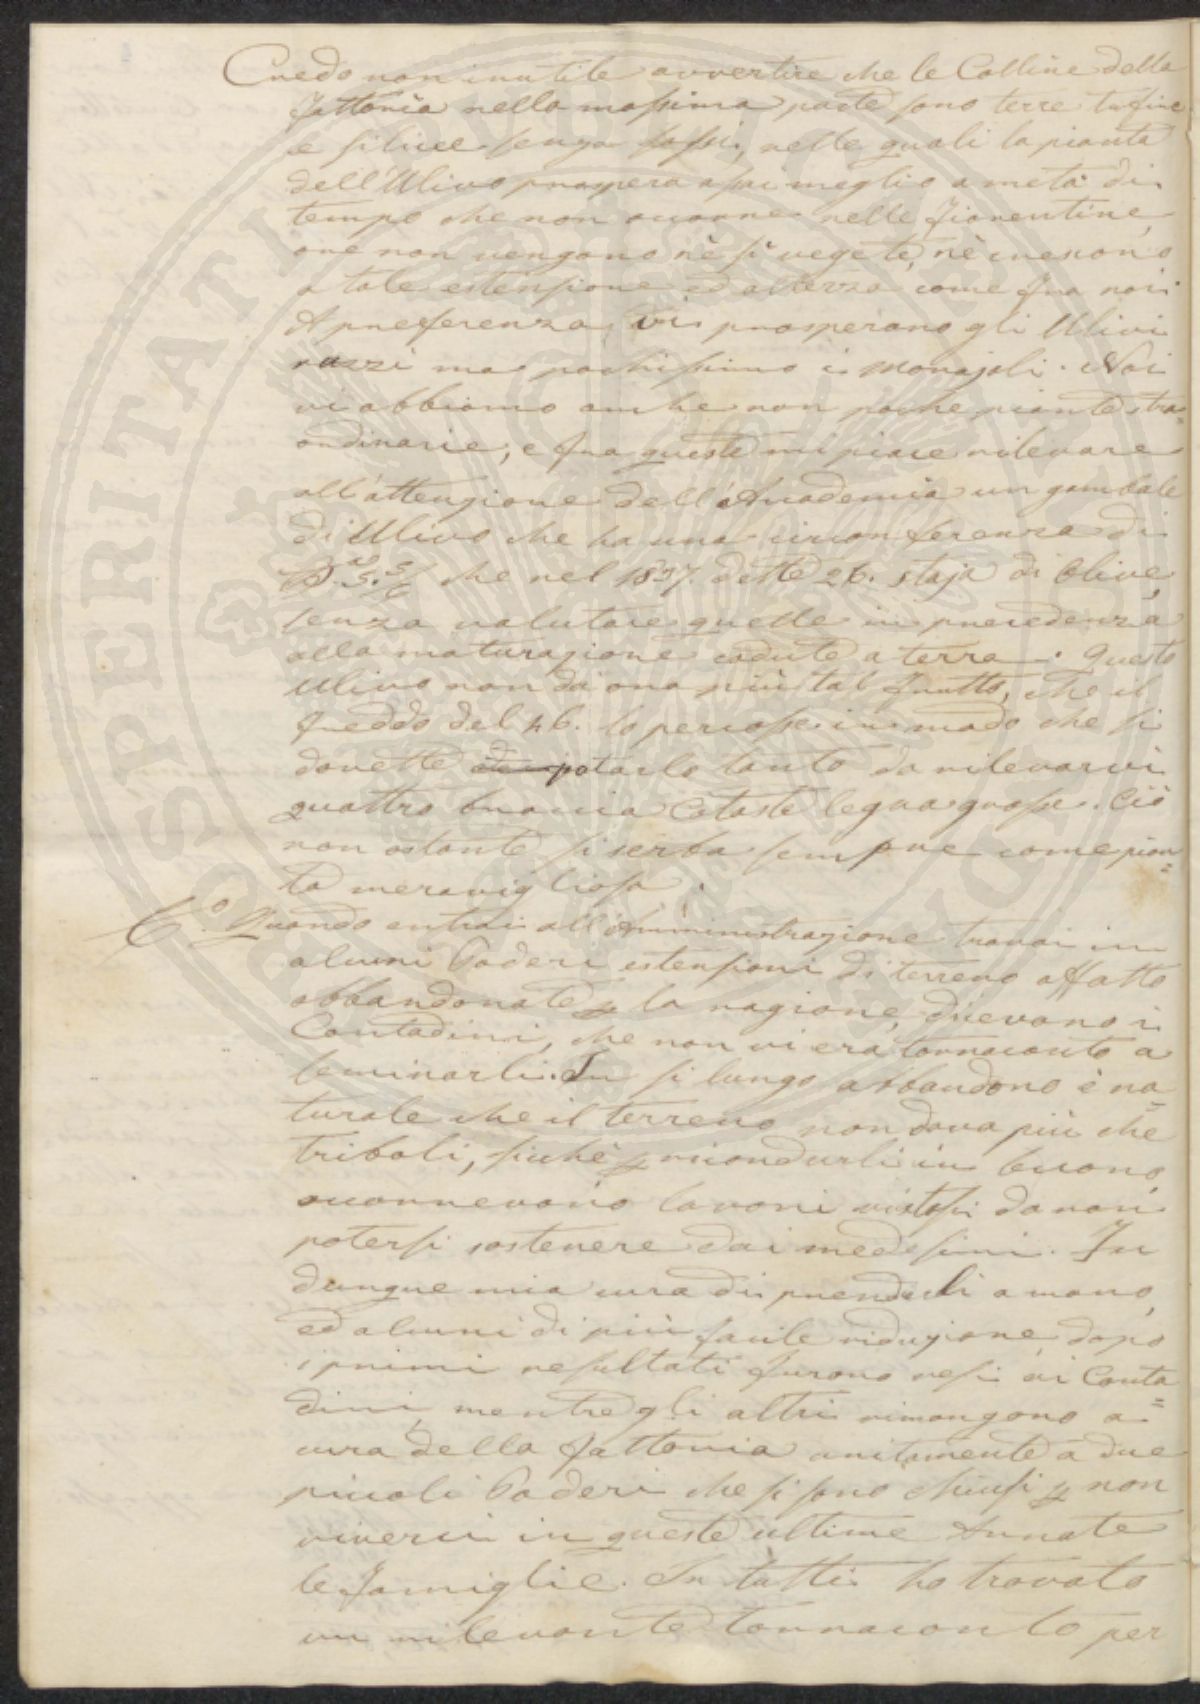 Credo non inutile avvertire che le Colline della
Fattoria nella massima parte sono terre tufine
e silicee senza sassi, nelle quali la pianta
dell'Ulivo prospera assai meglio a metà di
tempo che non occorre nelle Fiorentine,
ove non vengono nè sì vegete, nè crescono
a tale estensione ed altezza come fra noi.
A preferenza vi prosperano gli Ulivi
razzi ma pochissimo i Morajoli. Noi
vi abbiamo anche non poche piante stra=
ordinarie; e fra queste mi piace rilevare
all'attenzione dell'Accademia un gambale
di Ulivo che ha una circonferenza di
che nel 1837. dette 26. staja di Olive,
senza valutare quelle in precedenza
alla maturazione cadute a terra. Questo
Ulivo non dà ora più tal frutto, che il
freddo del 46. lo percosse in modo che si
dovette potarlo tanto da rilevarvi
quattro braccia Cataste legna grosse. Ciò
non ostante si serba sempre come pian=
ta meravigliosa.
6.° Quando entrai all'Amministrazione trovai in
alcuni Poderi estensioni di terreno affatto
abbandonate p la ragione, dicevano i
Contadini, che non vi era tornaconto a
seminarli. In sì lungo abbandono è na=
turale che il terreno non dava più che
triboli, sichè p ricondurli in buono,
occorrevano lavori vistosi da non
potersi sostenere dai medesimi. Fu
dunque mia cura di prenderli a mano,
ed alcuni di più facile riduzione, dopo
i primi resultati furono resi ai Conta=
dini, mentre gli altri rimangono a
cura della Fattoria unitamente a due
piccoli Poderi che si sono chiusi p non
viverci in queste ultime Annate
le famiglie. In tutti ho trovato
un rilevante tornaconto per